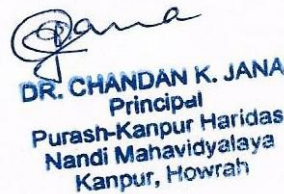 Jana
DR. CHANDAN K. JANA
Principal
Purash-Kanpur Haridas
Nandi Mahavidyalaya
Kanpur, Howrah